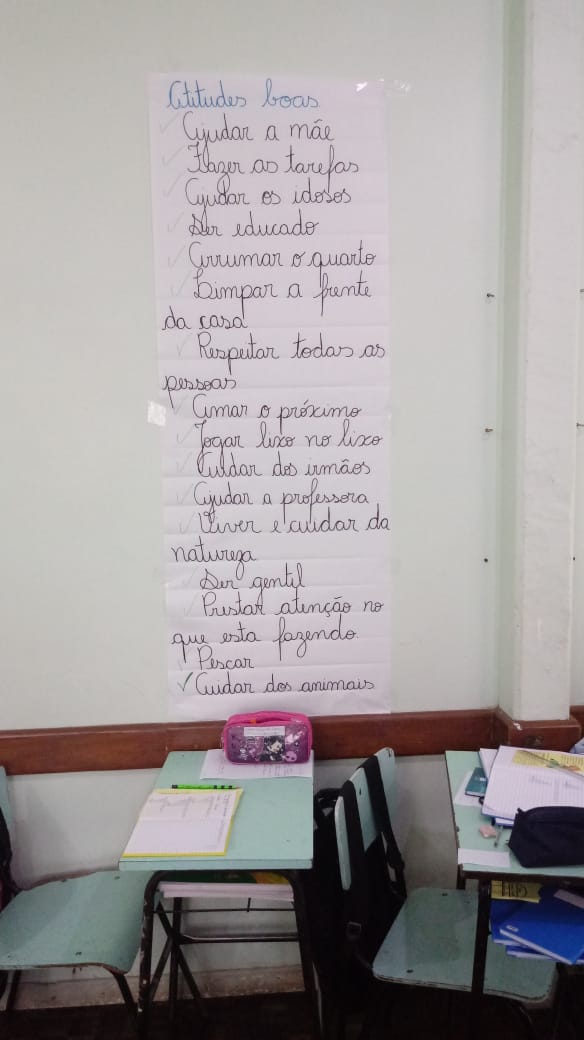 Atitudes boas
Ajudar a mãe
Fazer as tarefas
Ajudar os idosos
Ser educado
Arrumar o quarto
Limpar a frente
da casa
Respeitar todas as
pessoas
Amar o próximo
Jogar lixo no lixo
Cuidar dos irmãos
Ajudar a professora
Viver e cuidar da
natureza
Ser gentil
Prestar atenção no
que esta fazendo.
Pescar
Cuidar dos animais